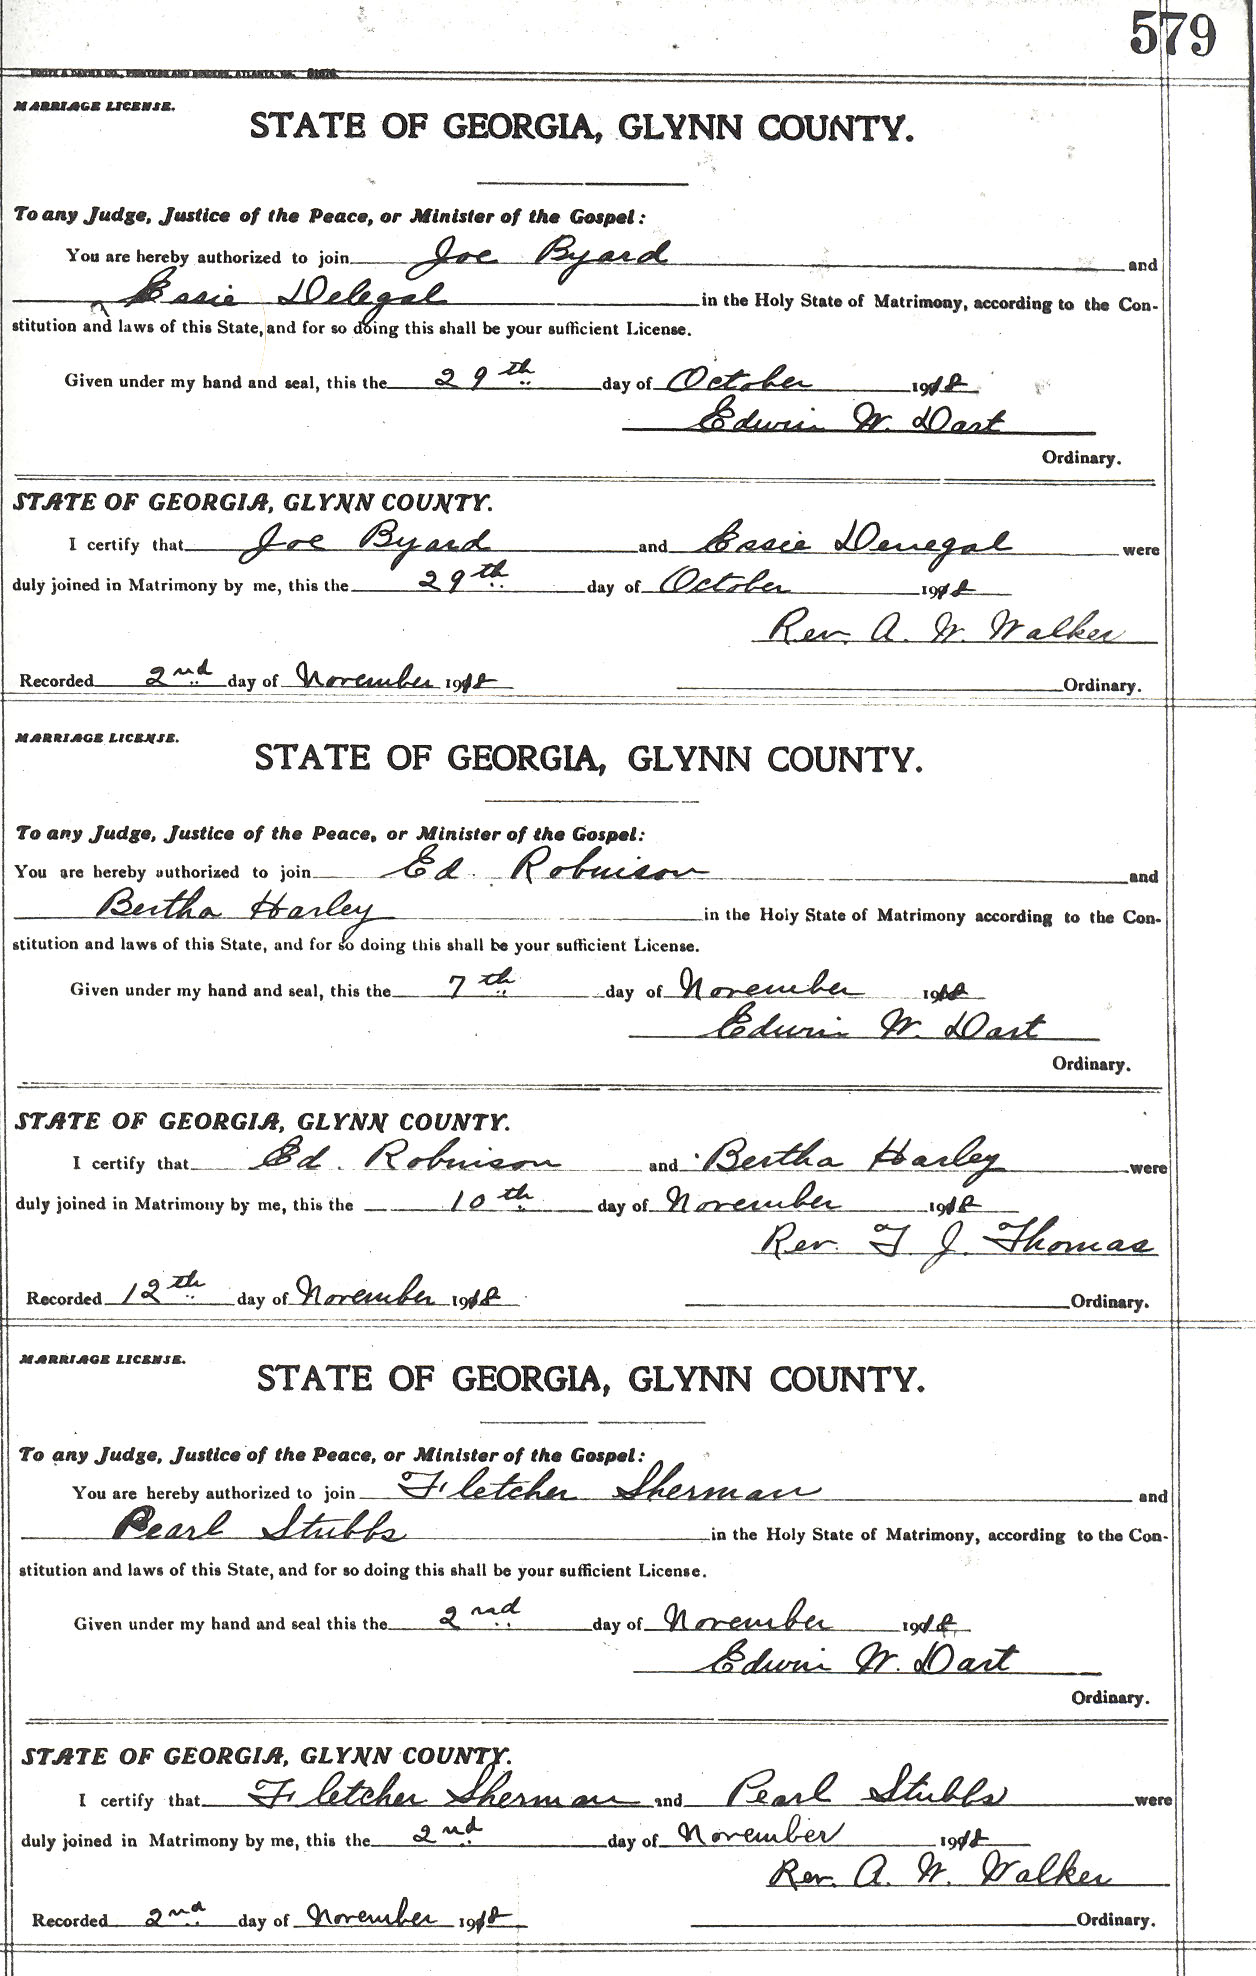 579
FOOTE & DAVIES CO., PRINTERS AND BINDERS, ATLANTA, GA.
MARRIAGE LICENSE.
STATE OF GEORGIA, GLYNN COUNTY.
To any Judge, Justice of the Peace, or Minister of the Gospel:
You are hereby authorized to join Joe Byard and
Essie Delegal in the Holy State of Matrimony, according to the Con-
stitution and laws of this State, and for so doing this shall be your sufficient License.
Given under my hand and seal, this the 29th day of October 1918
Edwin W. Dart
Ordinary.
STATE OF GEORGIA, GLYNN COUNTY.
I certify that Joe Byard and Essie Denegal were
duly joined in Matrimony by me, this the 29th day of October 1918
Rev. A. W. Walker
Recorded 2nd day of November 1918 Ordinary.
MARRIAGE LICENSE.
STATE OF GEORGIA, GLYNN COUNTY.
To any Judge, Justice of the Peace, or Minister of the Gospel:
You are hereby authorized to join Ed. Robinson and
Bertha Harley in the Holy State of Matrimony according to the Con-
stitution and laws of this State, and for so doing this shall be your sufficient License.
Given under my hand and seal, this the 7th day of November 1918
Edwin W. Dart
Ordinary.
STATE OF GEORGIA, GLYNN COUNTY.
I certify that Ed. Robinson and Bertha Harley were
duly joined in Matrimony by me, this the 10th day of November 1918
Rev. T. J. Thomas
Recorded 12th day of November 1918 Ordinary.
MARRIAGE LICENSE.
STATE OF GEORGIA, GLYNN COUNTY.
To any Judge, Justice of the Peace, or Minister of the Gospel:
You are hereby authorized to join Fletcher Sherman and
Pearl Stubbs in the Holy State of Matrimony, according to the Con-
stitution and laws of this State, and for so doing this shall be your sufficient License.
Given under my hand and seal this the 2nd day of November 1918
Edwin W. Dart
Ordinary.
STATE OF GEORGIA, GLYNN COUNTY.
I certify that Fletcher Sherman and Pearl Stubbs were
duly joined in Matrimony by me, this the 2nd day of November 1918
Rev. A. W. Walker
Recorded 2nd day of November 1918 Ordinary.